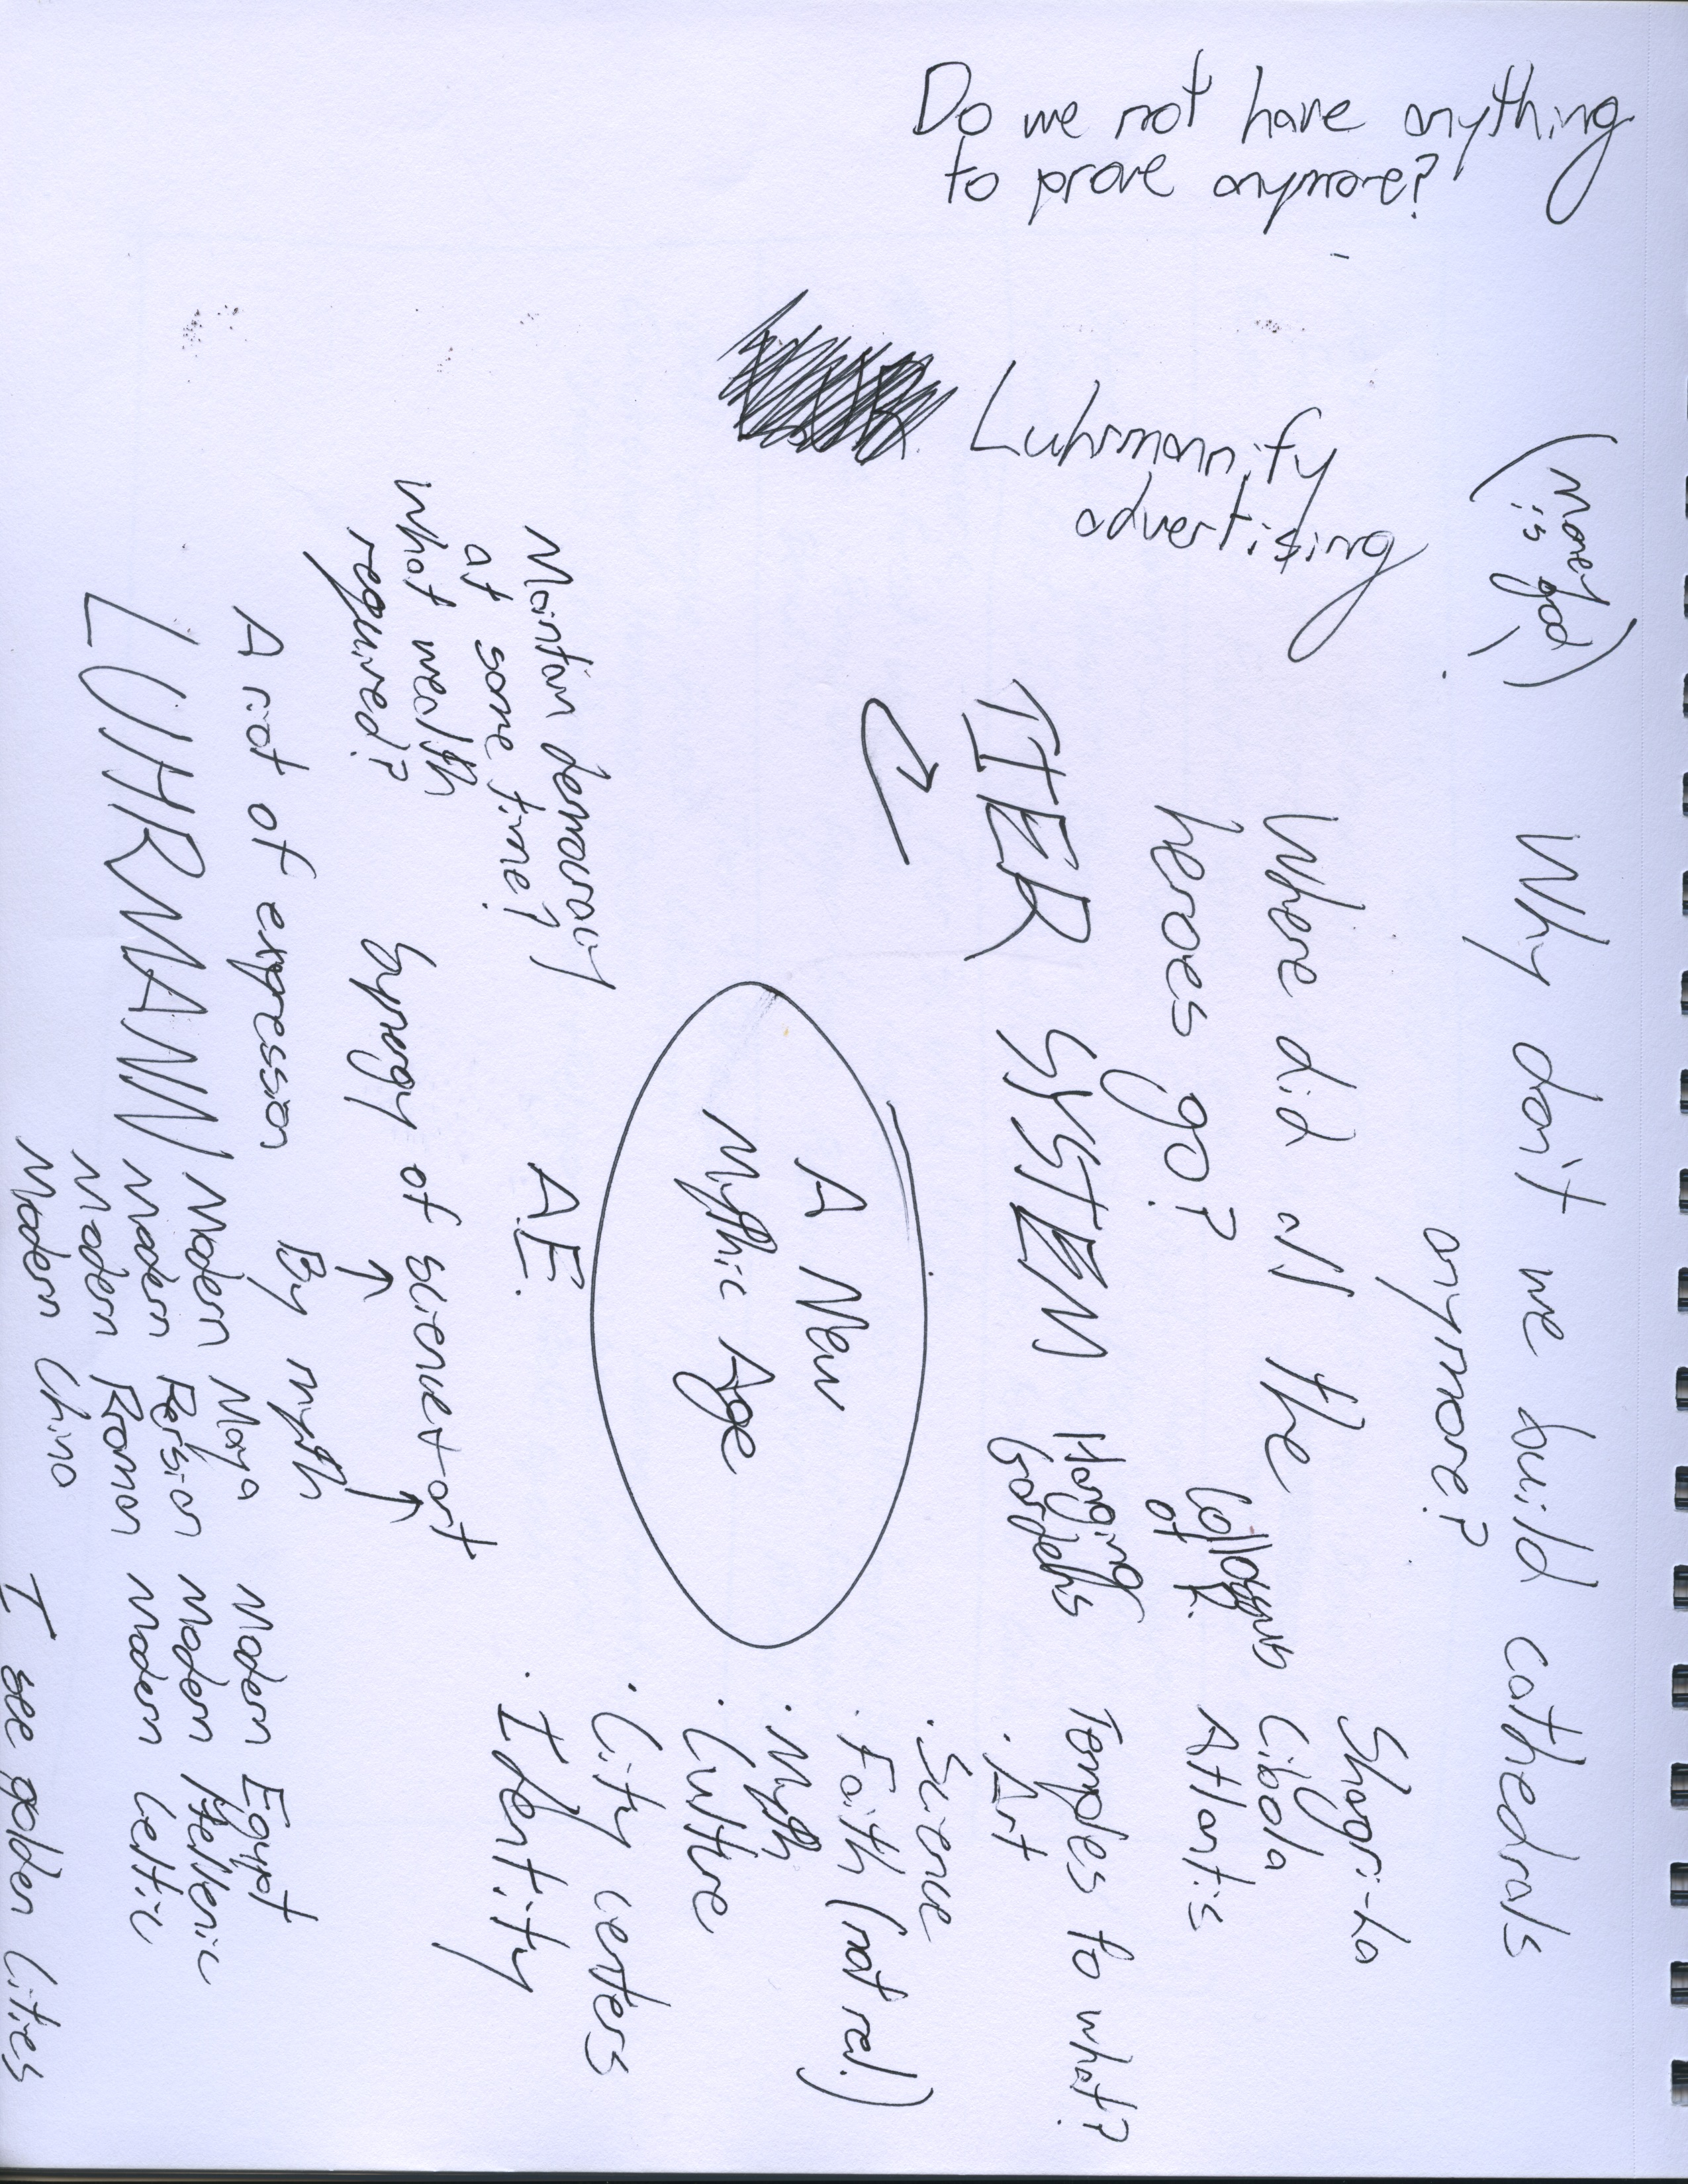 Do we not have anything
to prove anymore?
Luhrmannify
advertising
(Money
is god)
Why don't we build cathedrals
anymore?
Where did all the
heroes go?
ITER SYSTEM
Collossus
of R.
Hanging
Gardens
Shagri-La
Cibola
Atlantis
Temples to what?
· Art
· Science
· Faith (not rel.)
· Myth
· Culture
· City centers
· Identity
A New
Mythic Age
A.E.
Maintain democracy
at same time?
What wealth
required?
Synergy of science + art
↑ ↑
By myth
A riot of expression
LUHRMANN
Modern Maya
Modern Persian
Modern Roman
Modern China
Modern Egypt
Modern Hellenic
Modern Celtic
I see golden cities